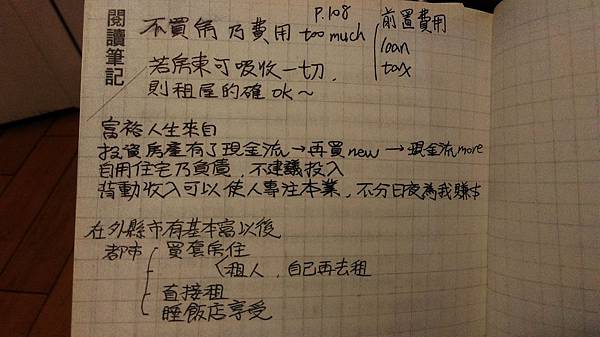 閱讀筆記
P.108
不買角乃費用 too much
前置費用
loan
tax
若房東可吸收一切,
則租屋的確OK~
富裕人生來自
投資房產有了現金流→再買new→現金流more
自用住宅乃負債,不建議投入
背動收入可以使人專注本業,不分日夜為我賺
在外縣市有基本富以後
都市
買套房住
租人,自己再去租
直接租
睡飯店享受